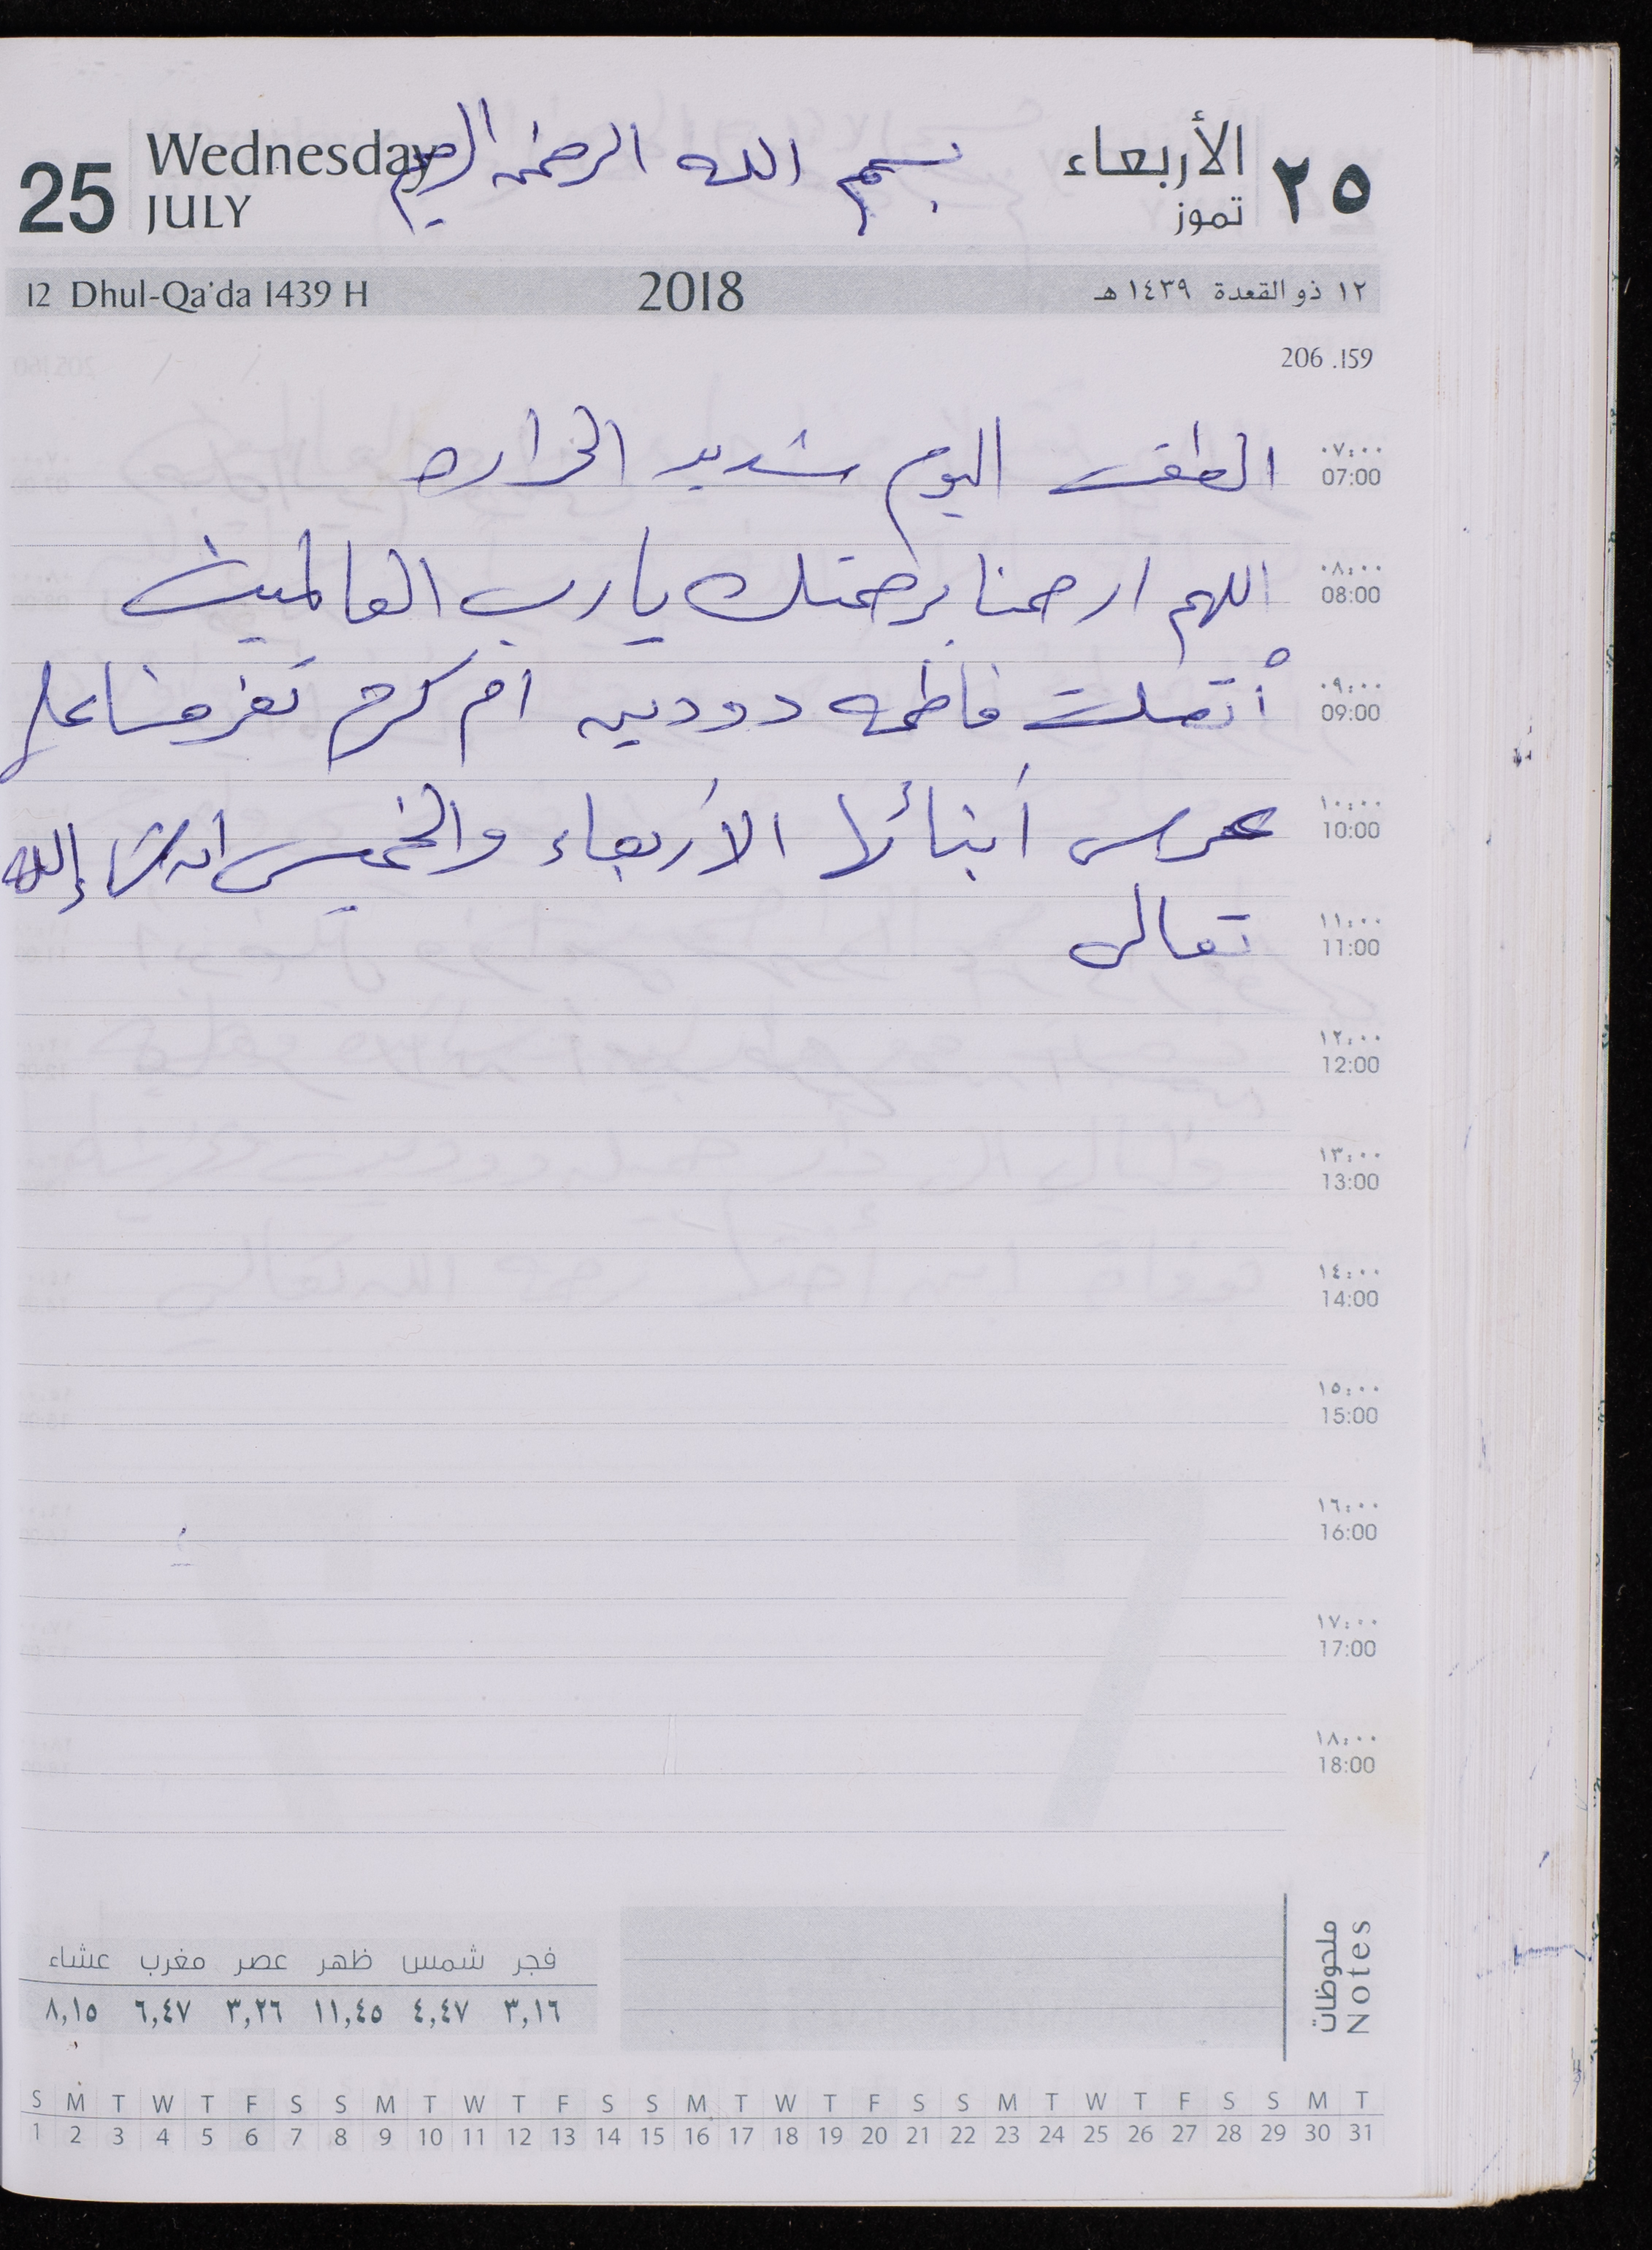 25 Wednesday JULY بسم الله الرحمن الرحيم الأربعاء تموز ٢٥
12 Dhul-Qa'da 1439 H 2018 ١٢ ذو القعدة ١٤٣٩ هـ
206 .159
الطقس اليوم شديد الحراره
٠٧:٠٠
07:00
اللهم ارحمنا برحمتك يا رب العالمين
٠٨:٠٠
08:00
أتصلت فاطمه دودين ام كرم تعزمنا على
٠٩:٠٠
09:00
عرس أبنائها الأربعاء والخميس ان شاء الله
١٠:٠٠
10:00
تعالى
١١:٠٠
11:00
١٢:٠٠
12:00
١٣:٠٠
13:00
١٤:٠٠
14:00
١٥:٠٠
15:00
١٦:٠٠
16:00
١٧:٠٠
17:00
١٨:٠٠
18:00
7
ملحوظات
Notes
فجر شمس ظهر عصر مغرب عشاء
٣,١٦ ٤,٤٧ ١١,٤٥ ٣,٢٦ ٦,٤٧ ٨,١٥
S M T W T F S S M T W T F S S M T W T F S S M T W T F S S M T
1 2 3 4 5 6 7 8 9 10 11 12 13 14 15 16 17 18 19 20 21 22 23 24 25 26 27 28 29 30 31